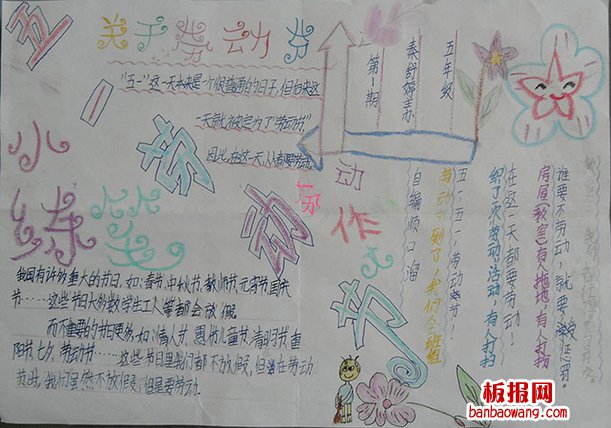 五一劳动节
关于劳动节
"五一"这一天本来是一个很普通的日子,但后来这
一天就被定为了"劳动节"
因此,在这一天人人都要劳动
五年级
秦舒婷主办
第1期
小练笔
我国有许多重大的节日,如:春节、中秋节、教师节、元宵节、国庆
节……这些节日大多数学生工人等都会放假
而不重要的节日便多,如:情人节、愚人节、儿童节、清明节、重
阳节、七夕、劳动节……这些节日里我们都不放假,但当在劳动
节时,我们虽然不放假,但是要劳动.
劳动作
自编顺口溜
五一,五一,劳动节!
劳动节到了,我们全班组
织了次劳动活动,有人打扫
在这一天都要劳动!
房屋(教室),有人拖地,有人打扫
谁要不劳动,就要被惩罚。
板报网
banbaowang.com